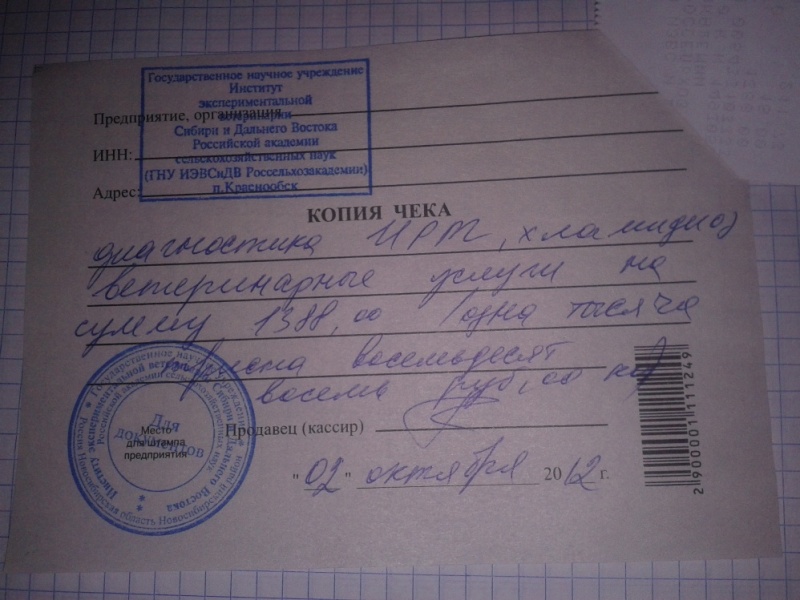 Государственное научное учреждение
Институт
экспериментальной
ветеринарии
Сибири и Дальнего Востока
Российской академии
сельскохозяйственных наук
(ГНУ ИЭВСиДВ Россельхозакадемии)
п.Краснообск
Предприятие, организация
ИНН:
Адрес:
КОПИЯ ЧЕКА
диагностика ИРТ, хламидиоз
ветеринарные услуги на
сумму 1388,00 (одна тысяча
триста восемьдесят
восемь руб, 00 коп)
Продавец (кассир)
"02" октября 2012 г.
Место
для штампа
предприятия
Для
документов
Институт экспериментальной ветеринарии Сибири и Дальнего Востока
Российской академии сельскохозяйственных наук
2 900001 111249